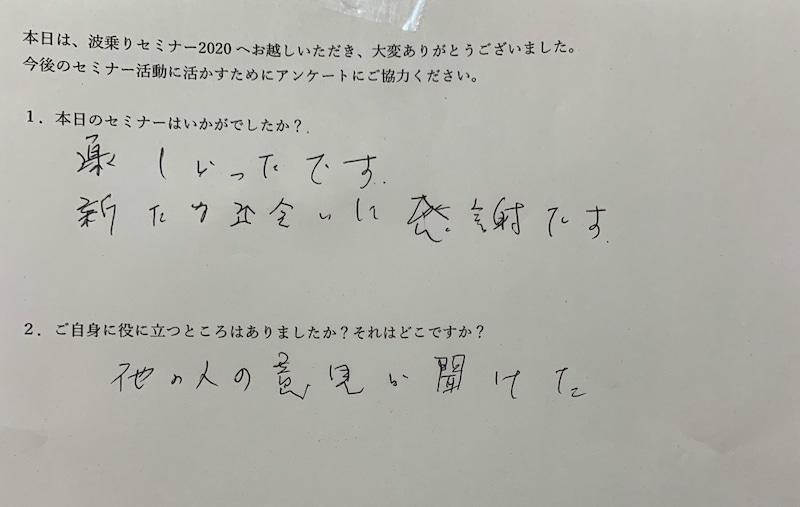 本日は、波乗りセミナー2020へお越しいただき、大変ありがとうございました。
今後のセミナー活動に活かすためにアンケートにご協力ください。
1．本日のセミナーはいかがでしたか？
楽しかったです.
新たな出会いに感謝です.
2．ご自身に役に立つところはありましたか？それはどこですか？
他の人の意見が聞けた